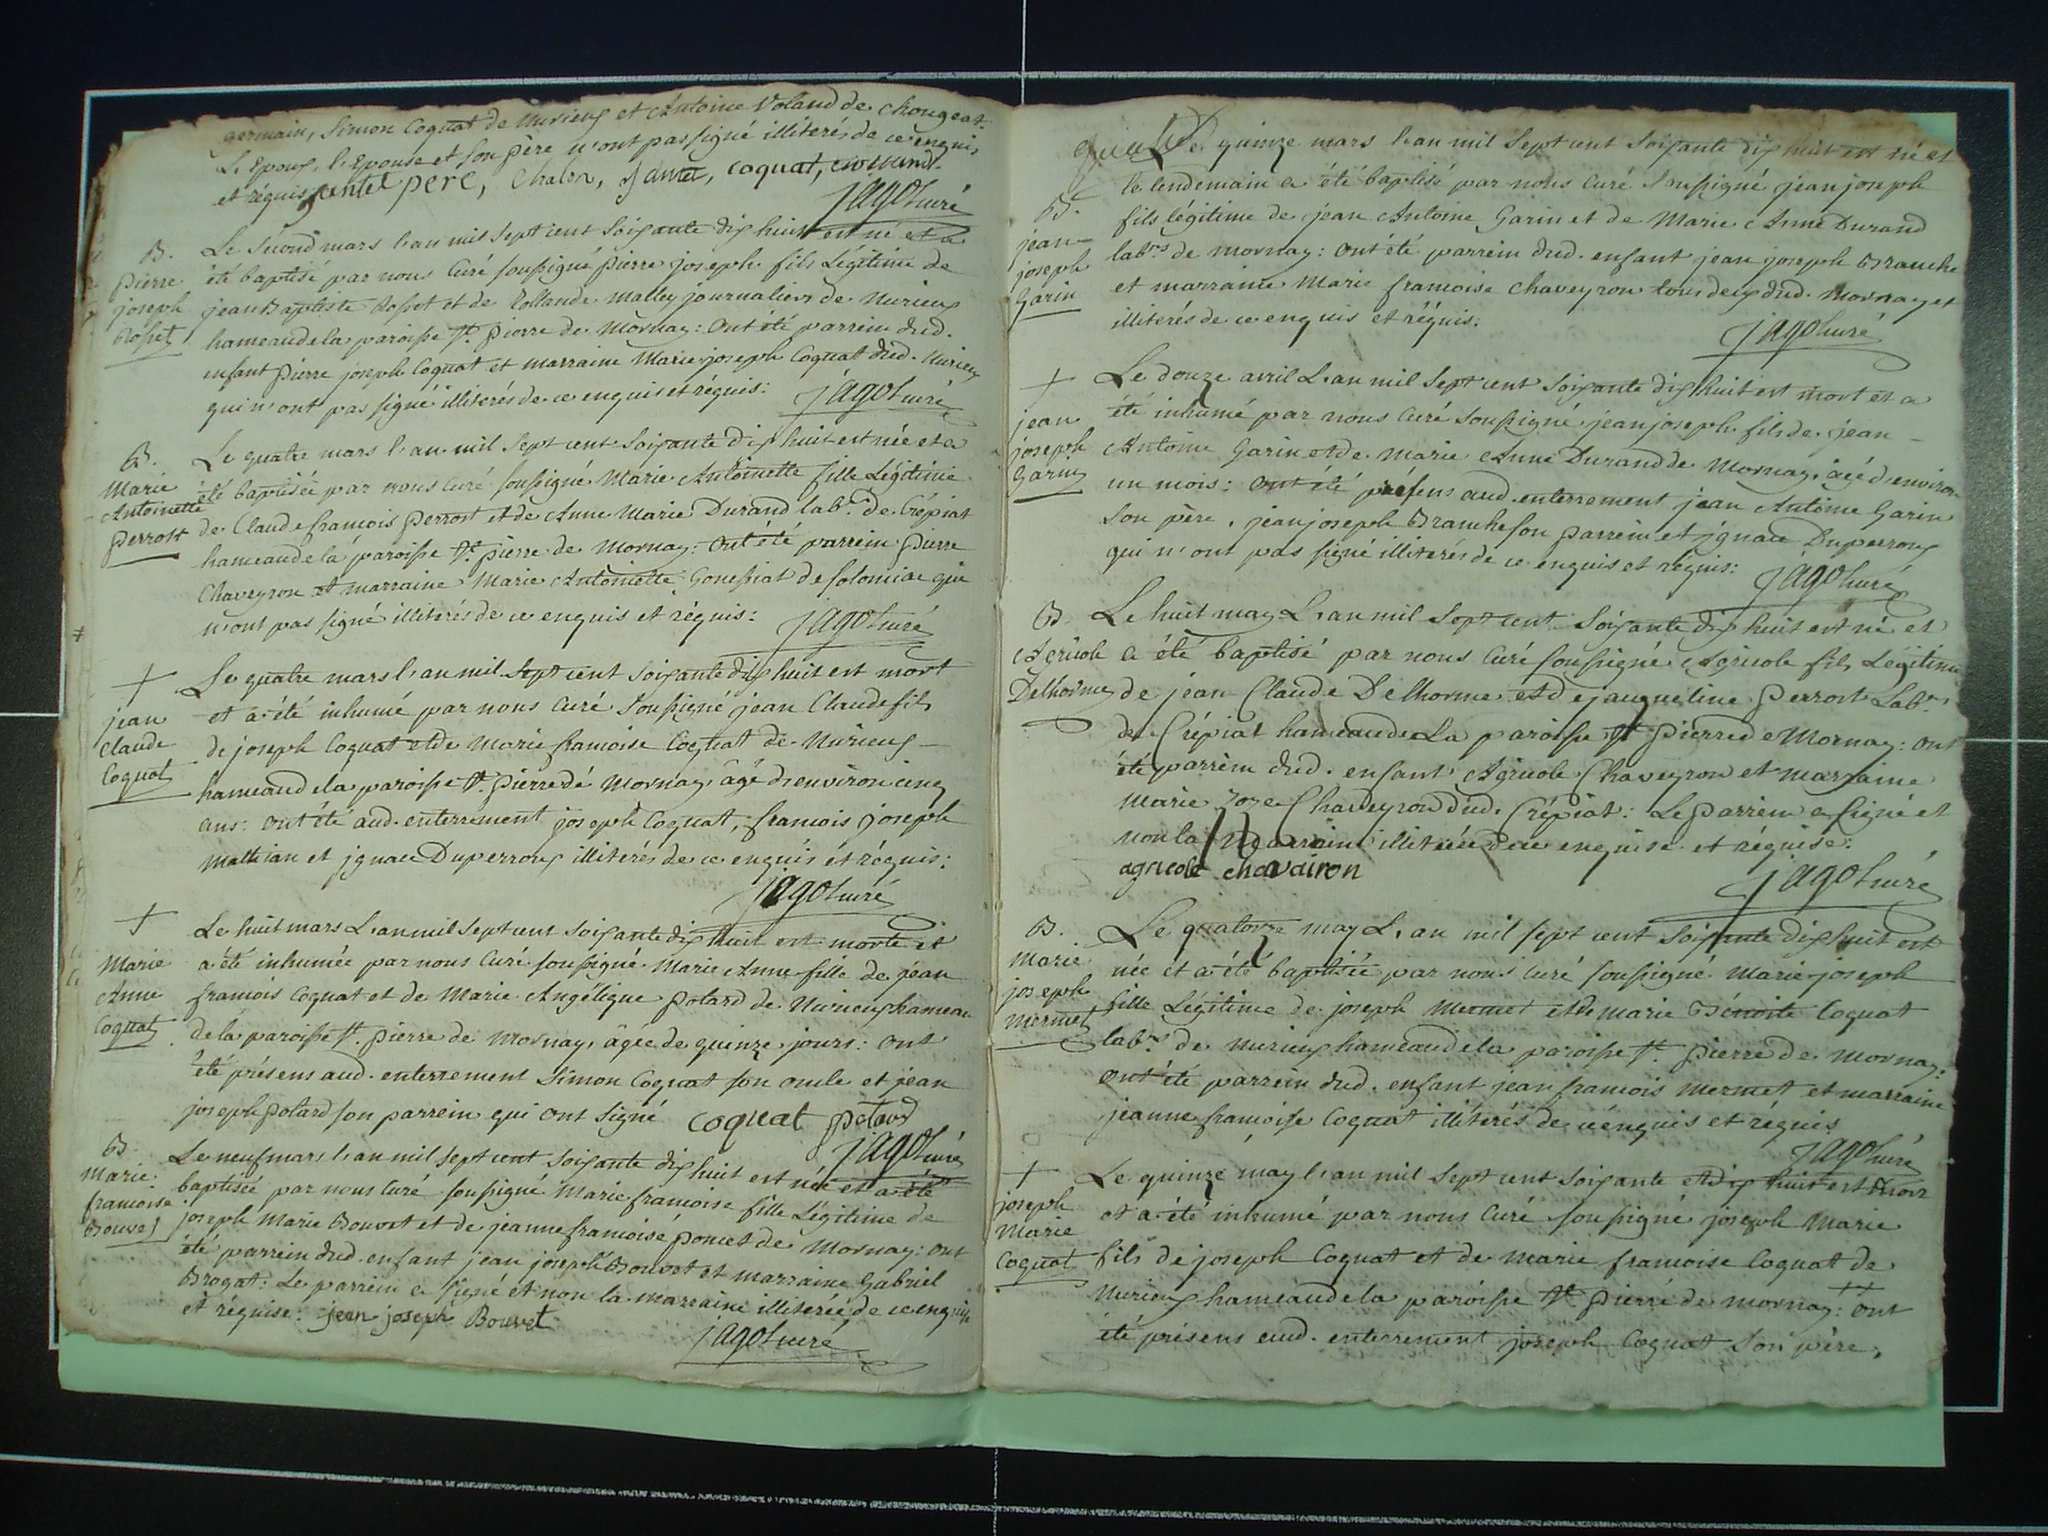 germain, Simon Coquat de Nurieux et Antoine Voland de Chougeat.
L'Epoux, l'Epouse et son père n'ont pas signé illiterés de ce enquis,
et réquis Jantet pere, Chalon, Jantet, coquat,
Jagot curé
B.
pierre
joseph
Rosset
Le second mars l'an mil sept cent soixante dix huit est né et a
été baptisé par nous Curé soussigné pierre joseph fils Légitime de
jean Baptiste Rosset et de Rollande Malley journaliers de Nurieux
hameau de la paroisse St. pierre de Mornay: Ont été parrein dud.
enfant pierre joseph Coquat et marraine Marie joseph Coquat dud. Nurieux
qui n'ont pas signé illiterés de ce enquis et réquis: Jagot curé
B.
Marie
Antoinette
perrost
Le quatre mars l'an mil sept cent soixante dix huit est née et a
été baptisée par nous Curé soussigné Marie Antoinette fille Légitime
de Claude francois perrost et de Anne Marie Durand labrs. de Crépiat
hameau de la paroisse St. pierre de Mornay: Ont été parrein pierre
Chaveyron et marraine Marie Antoinette Gonessiat de solomiac qui
n'ont pas signé illiterés de ce enquis et réquis: Jagot curé
+
jean
Claude
Coquat
Le quatre mars l'an mil sept cent soixante dix huit est mort
et a été inhumé par nous Curé soussigné jean Claude fils
de joseph Coquat et de Marie francoise Coquat de Nurieux
hameau de la paroisse St. pierre de Mornay, âgé d'environ cinq
ans: Ont été aud. enterrement joseph Coquat, francois joseph
Mathian et jgnace Duperroux illiterés de ce enquis et réquis:
Jagot curé
+
Marie
Anne
Coquat
Le huit mars L'an mil sept cent soixante dix huit est morte et
a été inhumée par nous Curé soussigné Marie Anne fille de jean
francois Coquat et de Marie Angélique potard de Nurieux hameau
de la paroisse St. pierre de Mornay, âgée de quinze jours: Ont
été présens aud. enterrement Simon Coquat son oncle et jean
joseph potard son parrein qui ont signé coquat potard
Jagot curé
B.
Marie
francoise
Bouvet
Le neuf mars l'an mil sept cent soixante dix huit est née et a été
baptisée par nous Curé soussigné Marie francoise fille Légitime de
joseph Marie Bouvet et de jeanne francoise poncet de Mornay: Ont
été parrein dud. enfant jean joseph Bouvet et marraine Gabriel
Brogat: Le parrein a signé et non la marraine illiterée de ce enquise
et réquise: jean joseph Bouvet
Jagot curé
Le quinze mars l'an mil sept cent soixante dix huit est né et
le lendemain a été baptisé par nous Curé soussigné jean joseph
B.
jean
joseph
Garin
fils légitime de jean Antoine Garin et de Marie Anne Durand
labrs. de Mornay: Ont été parrein dud. enfant jean joseph Branche
et marraine Marie francoise Chaveyron tous deux dud. Mornay et
illiterés de ce enquis et réquis.
Jagot curé
+
jean
joseph
Garin
Le douze avril L'an mil sept cent soixante dix huit est mort et a
été inhumé par nous Curé soussigné jean joseph fils de jean
Antoine Garin et de Marie Anne Durand de Mornay, âgé d'environ
un mois: Ont été présens aud. enterrement jean Antoine Garin
son père, jean joseph Branche son parrein et jgnace Duperroux
qui n'ont pas signé illiterés de ce enquis et réquis:
Jagot curé
B.
Agricole
Delhorme
Le huit may L'an mil sept cent soixante dix huit est né et
a été baptisé par nous Curé soussigné Agricole fils Légitime
de jean Claude Delhorme et de jaqueline perrost Labrs.
de Crépiat hameau de La paroisse St pierre de Mornay: Ont
été parrein dud. enfant Agricole Chaveyron et marraine
Marie Joze Chaveyron dud. Crépiat: Le parrein a signé et
non la Marraine illiterée de ce enquise et réquise:
agricole chavairon
Jagot curé
B.
Marie
joseph
Mermet
Le quatorze may L'an mil sept cent soixante dix huit est
née et a été baptisée par nous Curé soussigné Marie joseph
fille Légitime de joseph Mermet et de marie Bénoite Coquat
labrs. de Nurieux hameau de la paroisse St. pierre de Mornay:
Ont été parrein dud. enfant jean francois Mermet et marraine
jeanne francoise Coquat illiterés de ce enquis et réquis
Jagot curé
+
joseph
Marie
Coquat
Le quinze may l'an mil sept cent soixante et dix huit est mort
et a été inhumé par nous Curé soussigné joseph Marie
fils de joseph Coquat et de Marie francoise Coquat de
Nurieux hameau de la paroisse St pierre de Mornay: Ont
été présens aud. enterrement joseph Coquat son père,